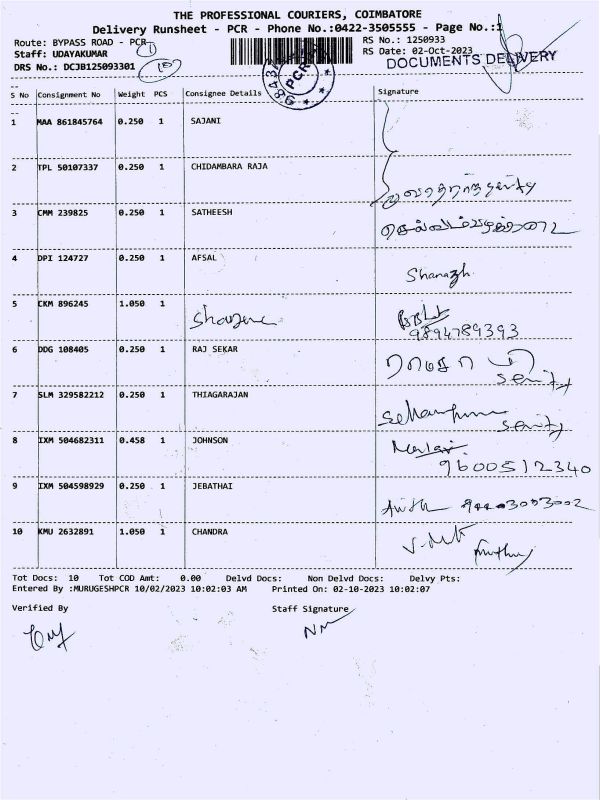 THE PROFESSIONAL COURIERS, COIMBATORE
Delivery Runsheet - PCR - Phone No.:0422-3505555 - Page No.:1
Route: BYPASS ROAD - PCR 1
RS No.: 1250933
Staff: UDAYAKUMAR
RS Date: 02-Oct-2023
DRS No.: DCJB125093301 10
DOCUMENTS DELIVERY
PCR
S No Consignment No Weight PCS Consignee Details Signature
1 MAA 861845764 0.250 1 SAJANI
2 TPL 50107337 0.250 1 CHIDAMBARA RAJA
3 CMM 239825 0.250 1 SATHEESH
4 DPI 124727 0.250 1 AFSAL
5 CKM 896245 1.050 1
9894789393
6 DDG 108405 0.250 1 RAJ SEKAR
7 SLM 329582212 0.250 1 THIAGARAJAN
8 IXM 504682311 0.458 1 JOHNSON
9600512340
9 IXM 504598929 0.250 1 JEBATHAI
10 KMU 2632891 1.050 1 CHANDRA
Tot Docs: 10 Tot COD Amt: 0.00 Delvd Docs: Non Delvd Docs: Delvy Pts:
Entered By :MURUGESHPCR 10/02/2023 10:02:03 AM Printed On: 02-10-2023 10:02:07
Verified By Staff Signature